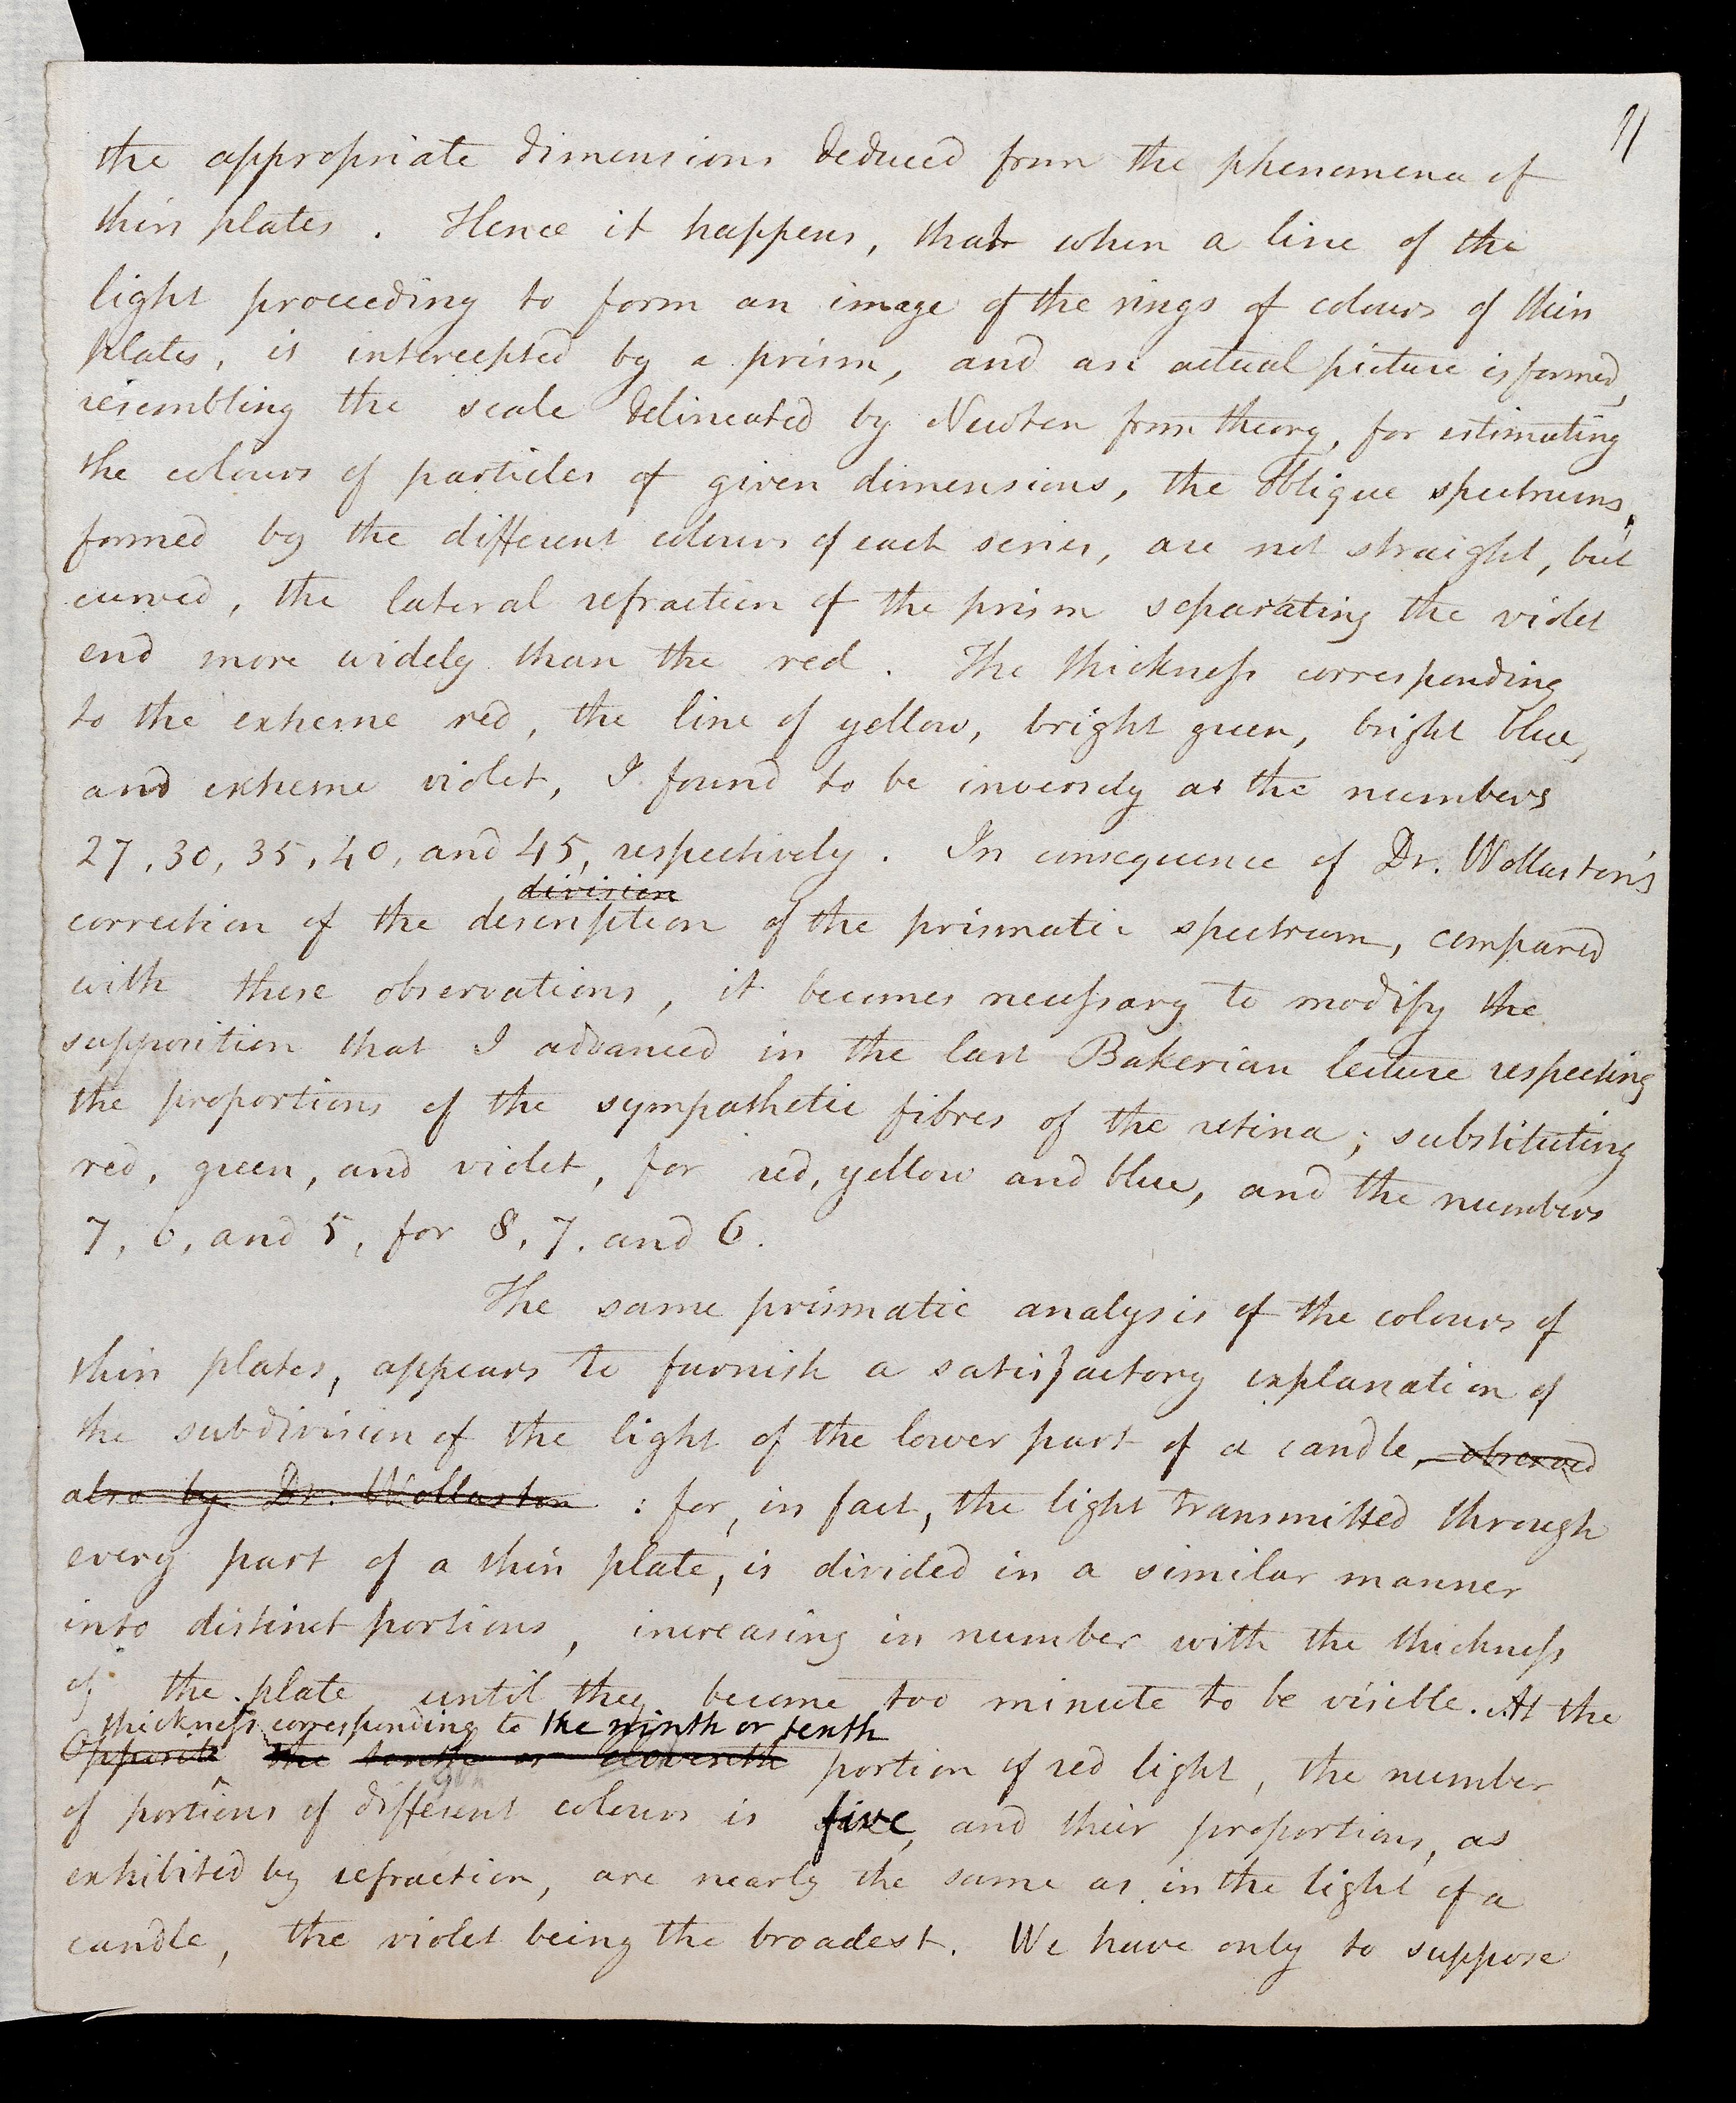 11
the appropriate dimensions deduced from the phenomena of
thin plates. Hence it happens, that when a line of the
light proceeding to form an image of the rings of colours of thin
plates, is intercepted by a prism, and an actual picture is formed,
resembling the scale delineated by Newton from theory, for estimating
the colours of particles of given dimensions, the oblique spectrums,
formed by the different colours of each series, are not straight, but
curved, the lateral refraction of the prism separating the violet
end more widely than the red. The thickness corresponding
to the extreme red, the line of yellow, bright green, bright blue,
and extreme violet, I found to be inversely as the numbers
27, 30, 35, 40, and 45, respectively. In consequence of Dr. Wollaston's
division
correction of the description of the prismatic spectrum, compared
with these observations, it becomes necessary to modify the
supposition that I advanced in the last Bakerian lecture respecting
the proportions of the sympathetic fibres of the retina; substituting
red, green, and violet, for red, yellow and blue, and the numbers
7, 6, and 5, for 8, 7, and 6.
The same prismatic analysis of the colours of
thin plates, appears to furnish a satisfactory explanation of
the subdivision of the light of the lower part of a candle, observed
also by Dr. Wollaston : for, in fact, the light transmitted through
every part of a thin plate, is divided in a similar manner
into distinct portions, increasing in number with the thickness
of the plate, until they become too minute to be visible. At the
thickness corresponding to the ninth or tenth
Opposite the tenth or eleventh portion of red light, the number
of portions of different colours is five, and their proportions, as
exhibited by refraction, are nearly the same as in the light of a
candle, the violet being the broadest. We have only to suppose